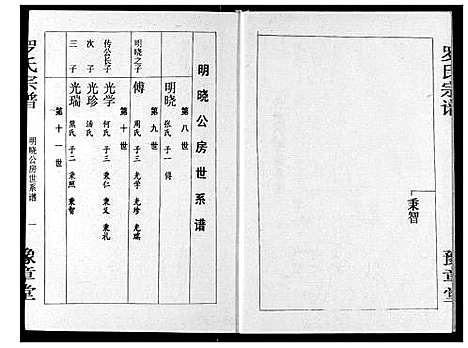 罗氏宗谱
秉智
豫章堂
明晓公房世系谱
第八世
明晓 张氏 子一 傅
第九世
明晓之子
傅 周氏 子三 光学 光珍 光瑞
第十世
传公长子
光学 何氏 子三 秉仁 秉义 秉礼
次子
光珍 汤氏
三子
光瑞 熊氏 子二 秉照 秉智
第十一世
罗氏宗谱
明晓公房世系谱
一
豫章堂